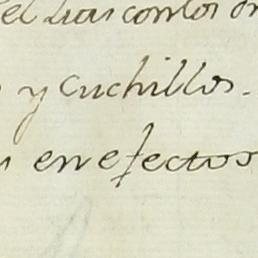 el con los
y Cuchillos.
en efectos